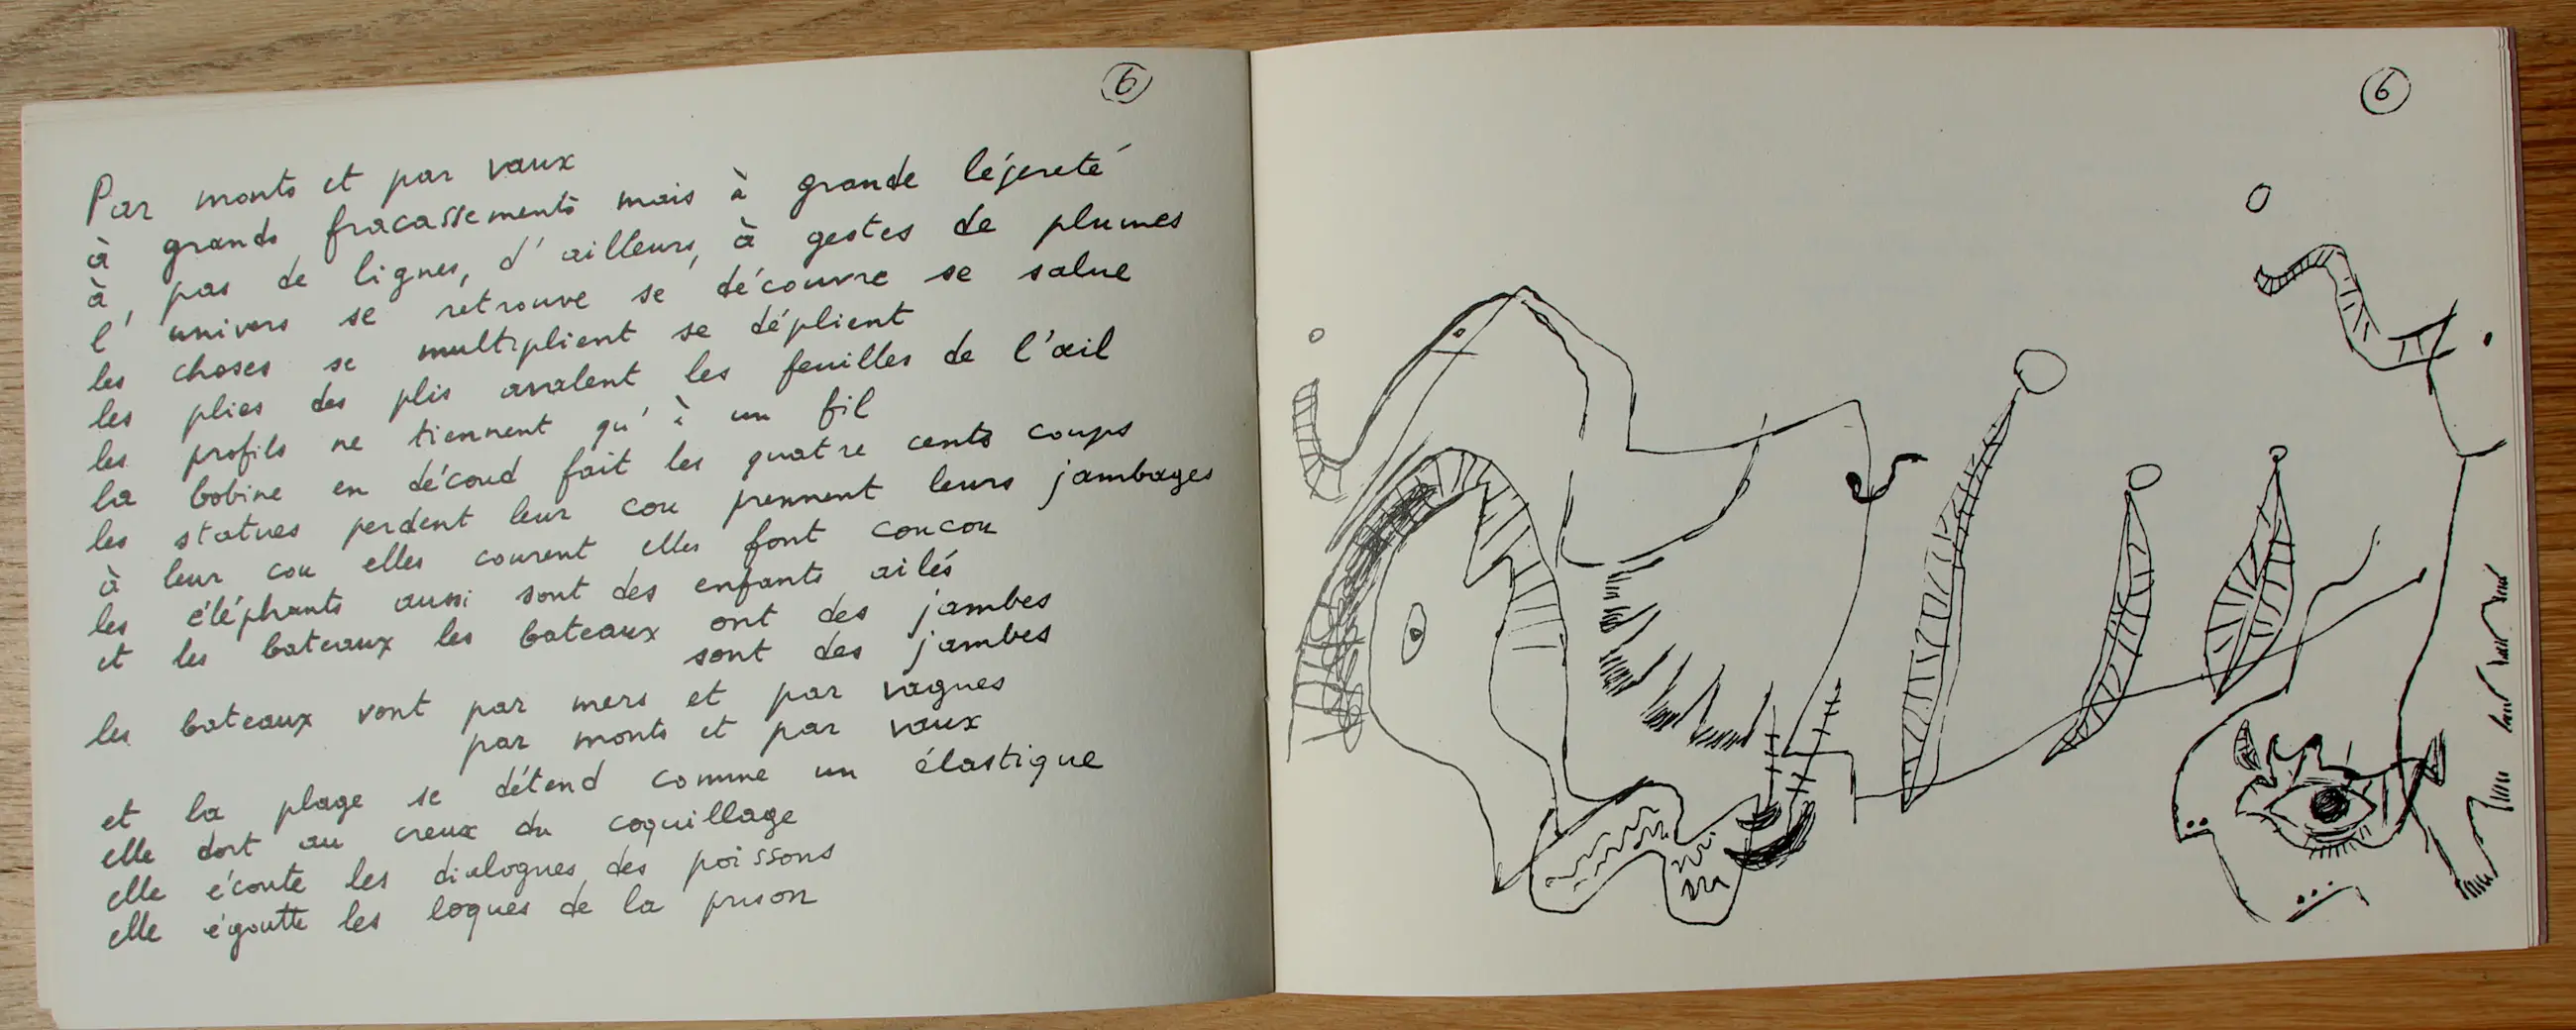 6
Par monts et par vaux
à grands fracassements mais à grande légereté
à, pas de lignes, d'ailleurs, à gestes de plumes
l'univers se retrouve se découvre se salue
les choses se multiplient se déplient
les plies des plis avalent les feuilles de l'œil
les profils ne tiennent qu'à un fil
la bobine en découd fait les quatre cents coups
les statues perdent leur cou prennent leurs jambages
à leur cou elles courent elles font coucou
les éléphants aussi sont des enfants ailés
et les bateaux les bateaux ont des jambes
sont des jambes
les bateaux vont par mers et par vagues
par monts et par vaux
et la plage se détend comme un élastique
elle dort au creux du coquillage
elle écoute les dialogues des poissons
elle égoutte les loques de la prison
6